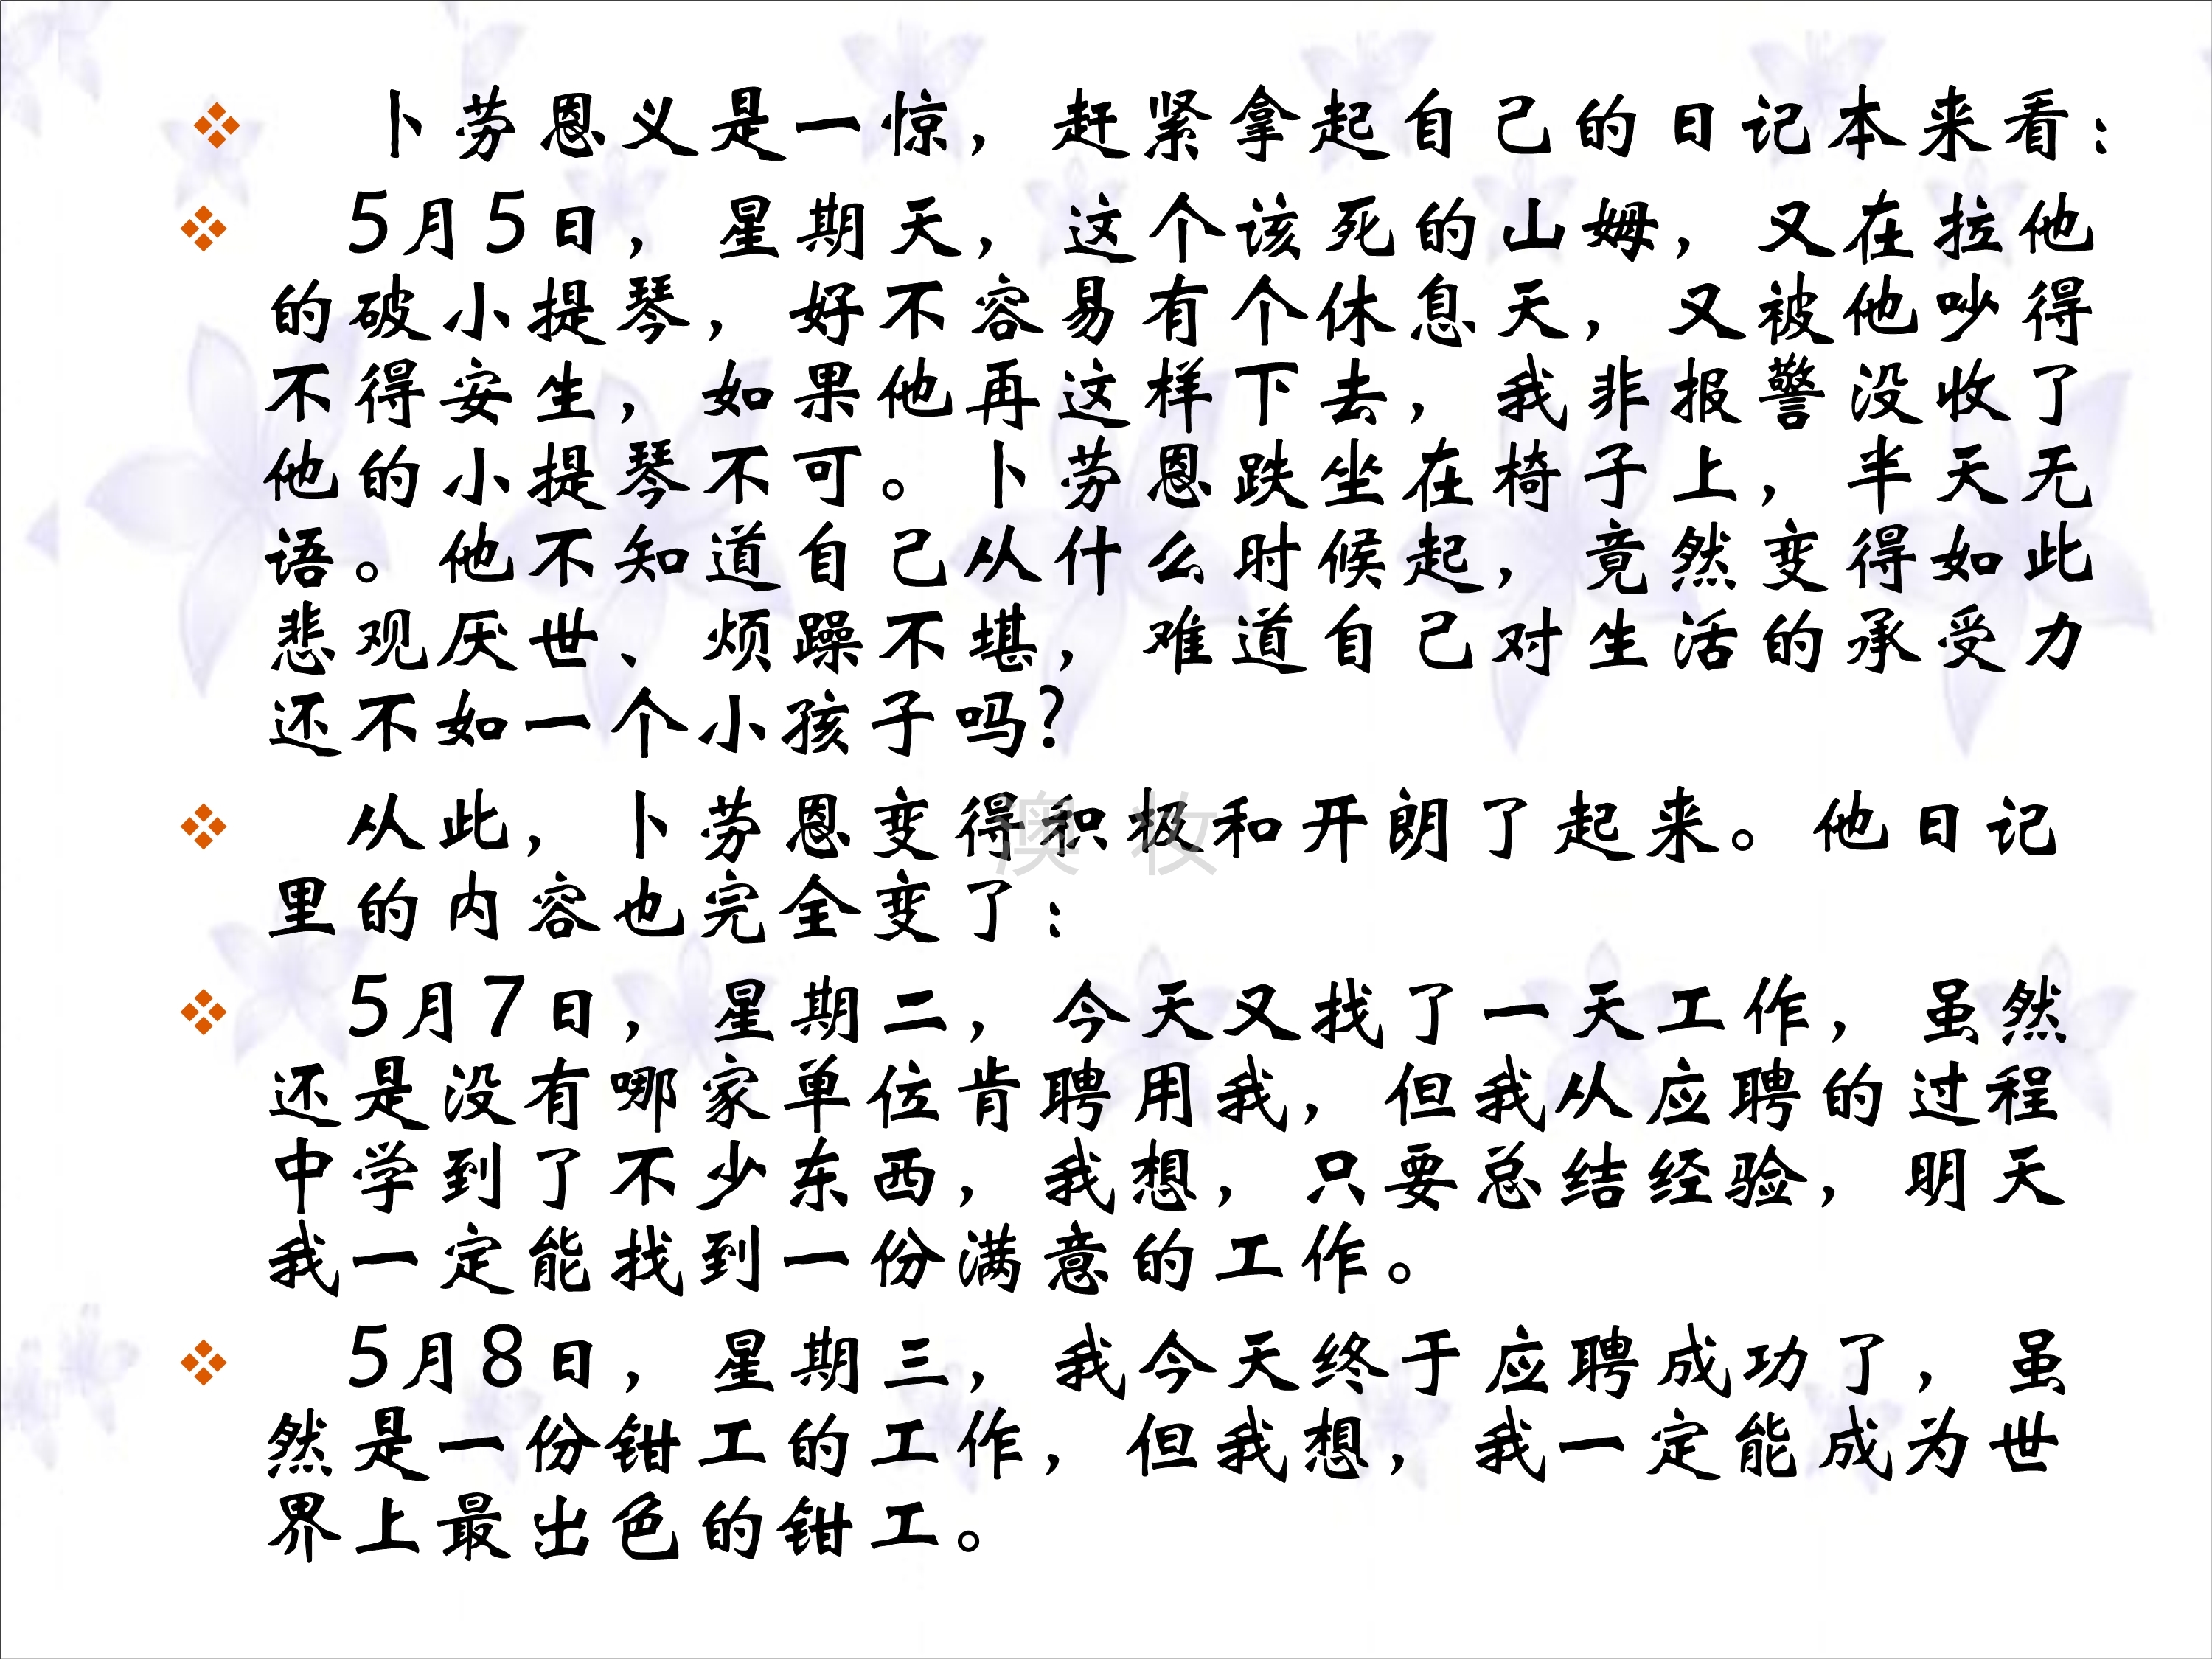 卜劳恩义是一惊，赶紧拿起自己的日记本来看：
5月5日，星期天，这个该死的山姆，又在拉他
的破小提琴，好不容易有个休息天，又被他吵得
不得安生，如果他再这样下去，我非报警没收了
他的小提琴不可。卜劳恩跌坐在椅子上，半天无
语。他不知道自己从什么时候起，竟然变得如此
悲观厌世、烦躁不堪，难道自己对生活的承受力
还不如一个小孩子吗?
从此，卜劳恩变得积极和开朗了起来。他日记
里的内容也完全变了：
澳妆
5月7日，星期二，今天又找了一天工作，虽然
还是没有哪家单位肯聘用我，但我从应聘的过程
中学到了不少东西，我想，只要总结经验，明天
我一定能找到一份满意的工作。
5月8日，星期三，我今天终于应聘成功了，虽
然是一份钳工的工作，但我想，我一定能成为世
界上最出色的钳工。